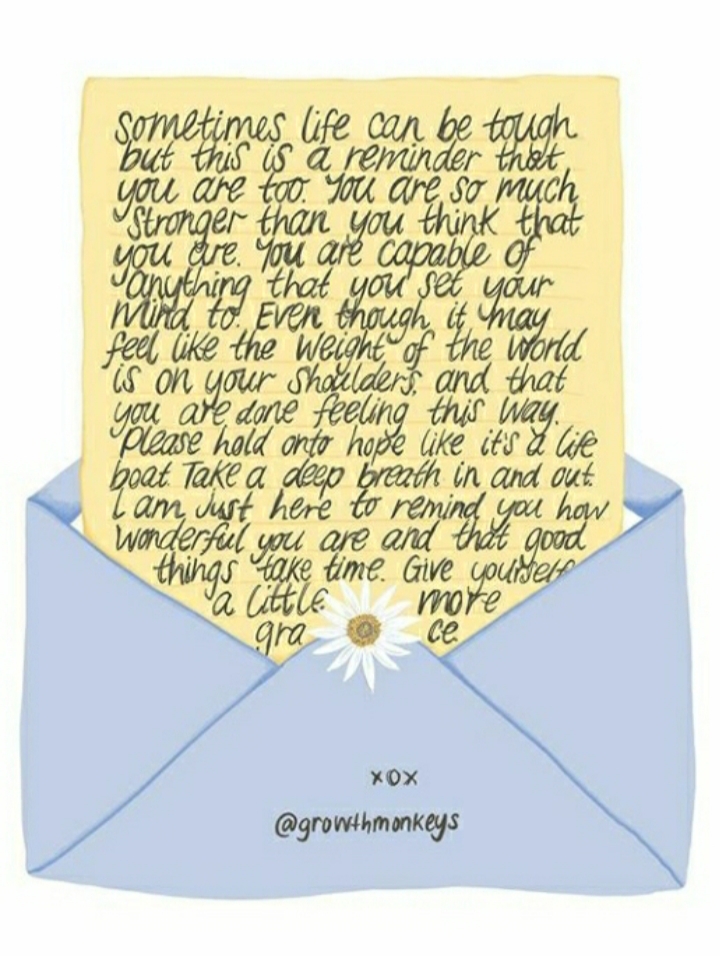 sometimes life can be tough
but this is a reminder that
you are too. You are so much
stronger than you think that
you are. You are capable of
anything that you set your
mind to. Even though it may
feel like the weight of the world
is on your shoulders, and that
you are done feeling this way.
Please hold onto hope like it's a life
boat. Take a deep breath in and out.
I am just here to remind you how
wonderful you are and that good
things take time. Give yourself
a little more
gra ce.
xox
@growthmonkeys